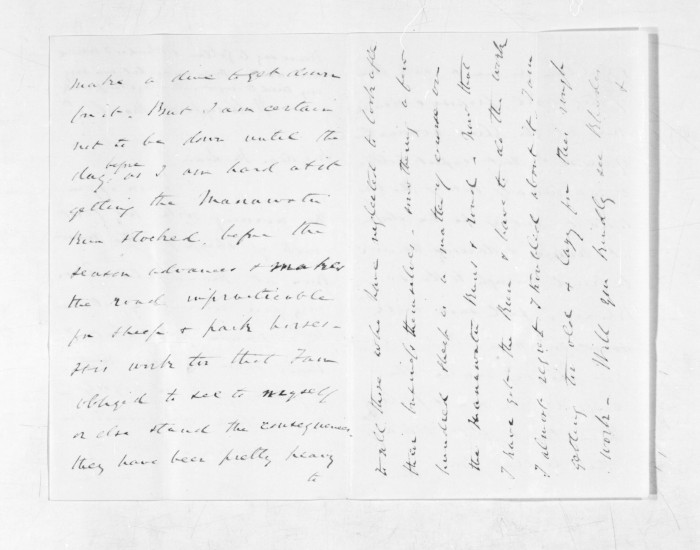 make a dive to get down
for it. But I am certain
not to be down until the
day before as I am hard at it
getting the Manawatu
Run stocked, before the
season advances & makes
the road impracticable
for sheep & pack horses -
this work too that I am
obliged to see to myself
or else stand the consequences.
they have been pretty heavy
to
to all those who have neglected to look after
their themselves - smothering a few
hundred sheep is a matter of course on
the Manawatu Run & road - Now that
I have got the Run & have to do the work
I almost regret I troubled about it. I am
getting too old & lazy for this rough
work - Will you kindly see